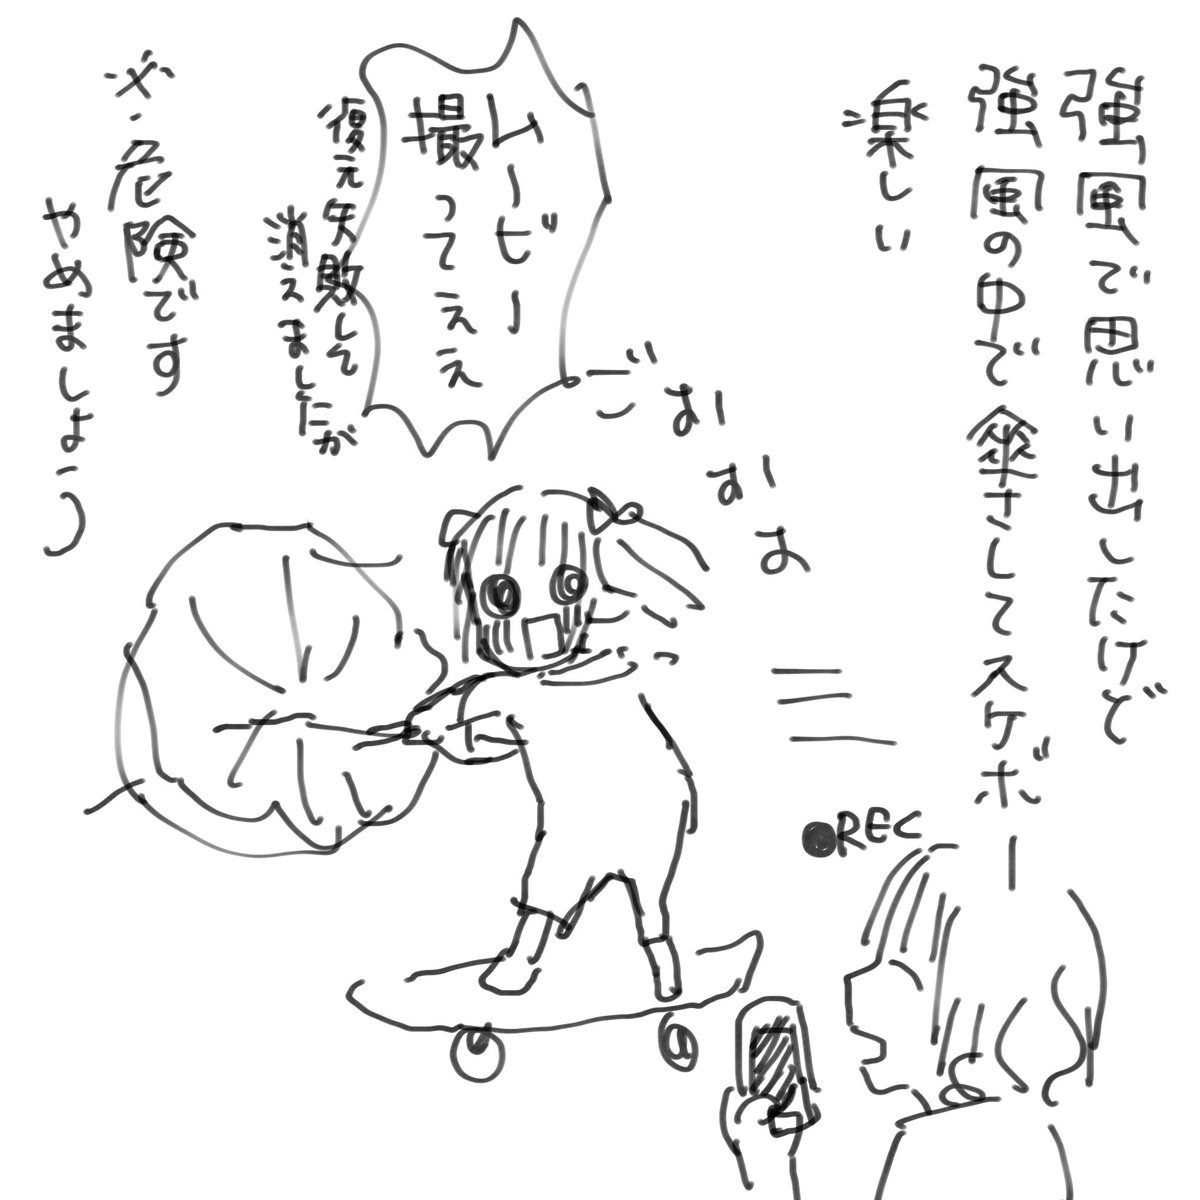 強風で思い出したけど
強風の中で傘さしてスケボー
楽しい
ムービー
撮ってええ
復元失敗して
消えましたが
※危険です
やめましょう
ごおおおお
●REC